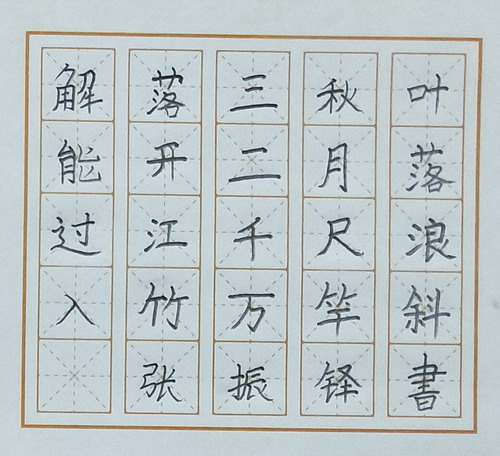 解落三秋叶
能开二月落
过江千尺浪
入竹万竿斜
张振铎書